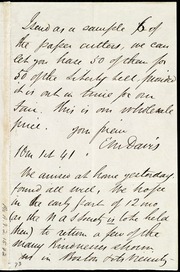 I send as a sample of
the paper cutters, we can
let you have 50 of them for
50 of the Liberty bell, provided
it is out in time for our
fair. This is our wholesale
price. your friend
E M Davis
10 m 1st 41
We arrived at home yesterday
found all well, We hope
in the early part of 12 mo,
as the N A Society is to be held
then) to return a few of the
many kindnesses shown
us in Boston